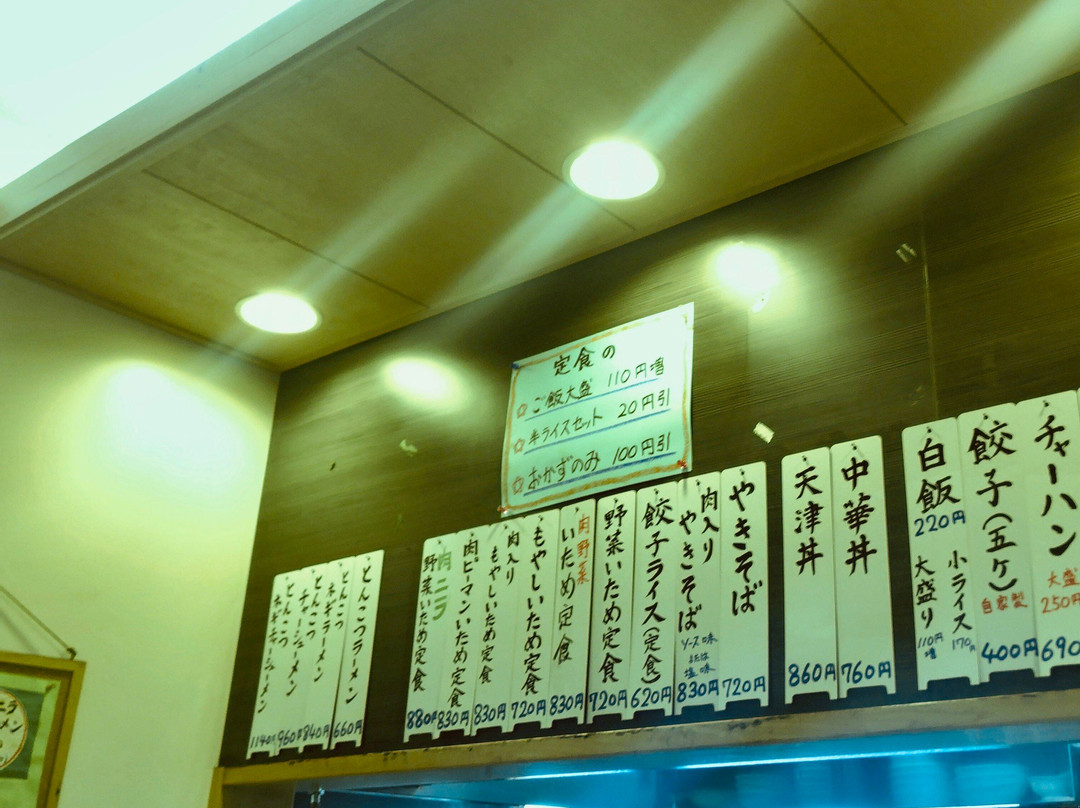 定食の
☆ご飯大盛 110円増
☆半ライスセット 20円引
☆おかずのみ 100円引
チャーハン
大盛
250円
690
餃子(五ケ)
自家製
400円
白飯
220円
小ライス
170円
大盛り
110円
増
中華丼
760円
天津丼
860円
やきそば
720円
肉入り
やきそば
ソース味
または
塩味
830円
餃子ライス(定食)
620円
野菜いため定食
720円
肉野菜
いため定食
830円
もやしいため定食
720円
肉入り
もやしいため定食
830円
肉ピーマンいため定食
830円
肉ニラ
野菜いため定食
880円
とんこつラーメン
660円
とんこつ
ネギラーメン
840円
とんこつ
チャーシューメン
960円
とんこつ
ネギチャーシューメン
1140円